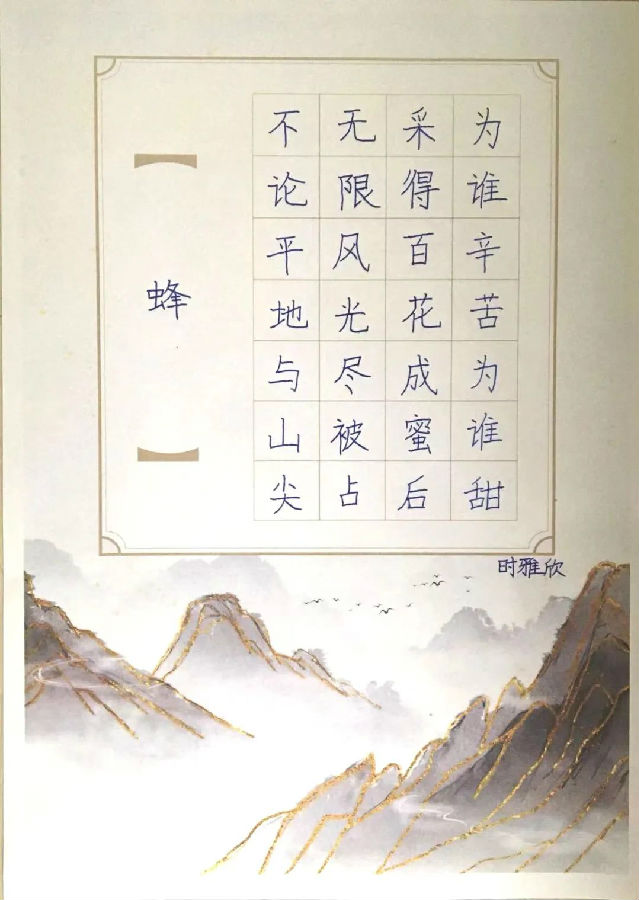 蜂
不论平地与山尖
无限风光尽被占
采得百花成蜜后
为谁辛苦为谁甜
时雅欣